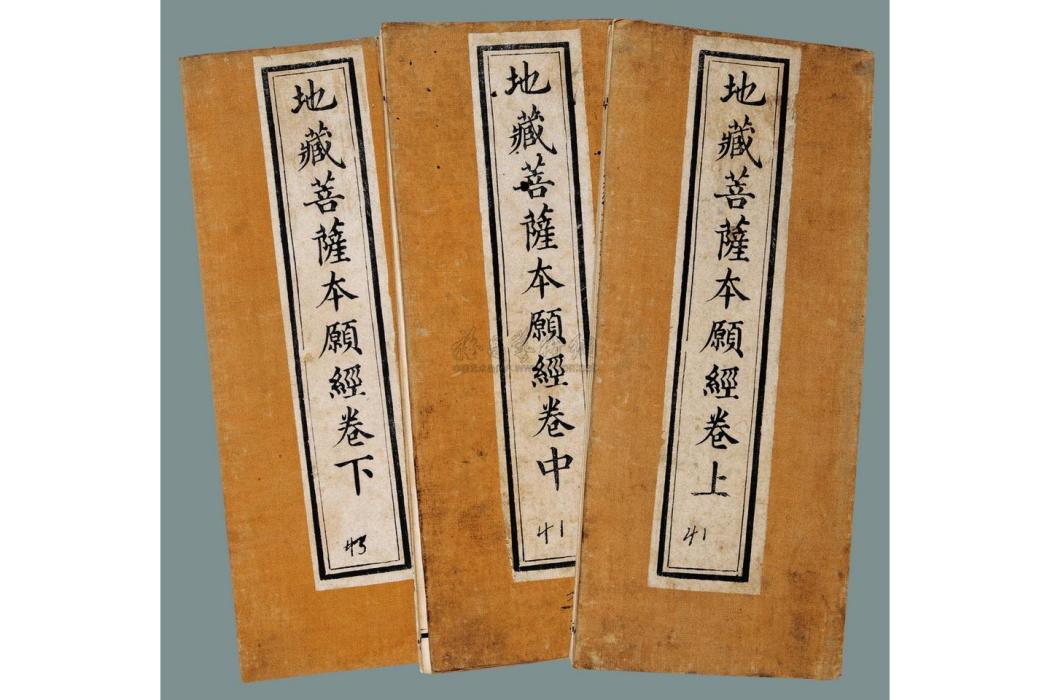 地藏菩薩本願經卷上
41
地藏菩薩本願經卷中
41
地藏菩薩本願經卷下